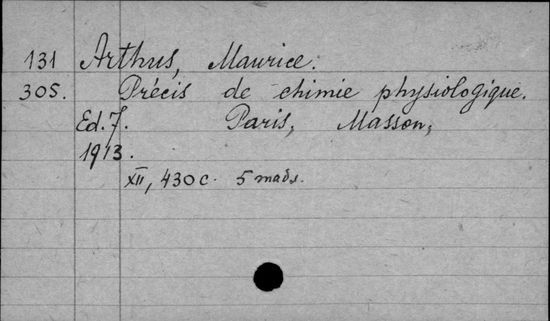 131 Arthus, Maurice.
305. Précis de chimie physiologique.
Ed. 7. Paris, Masson,
1913.
XII, 430 c. 5